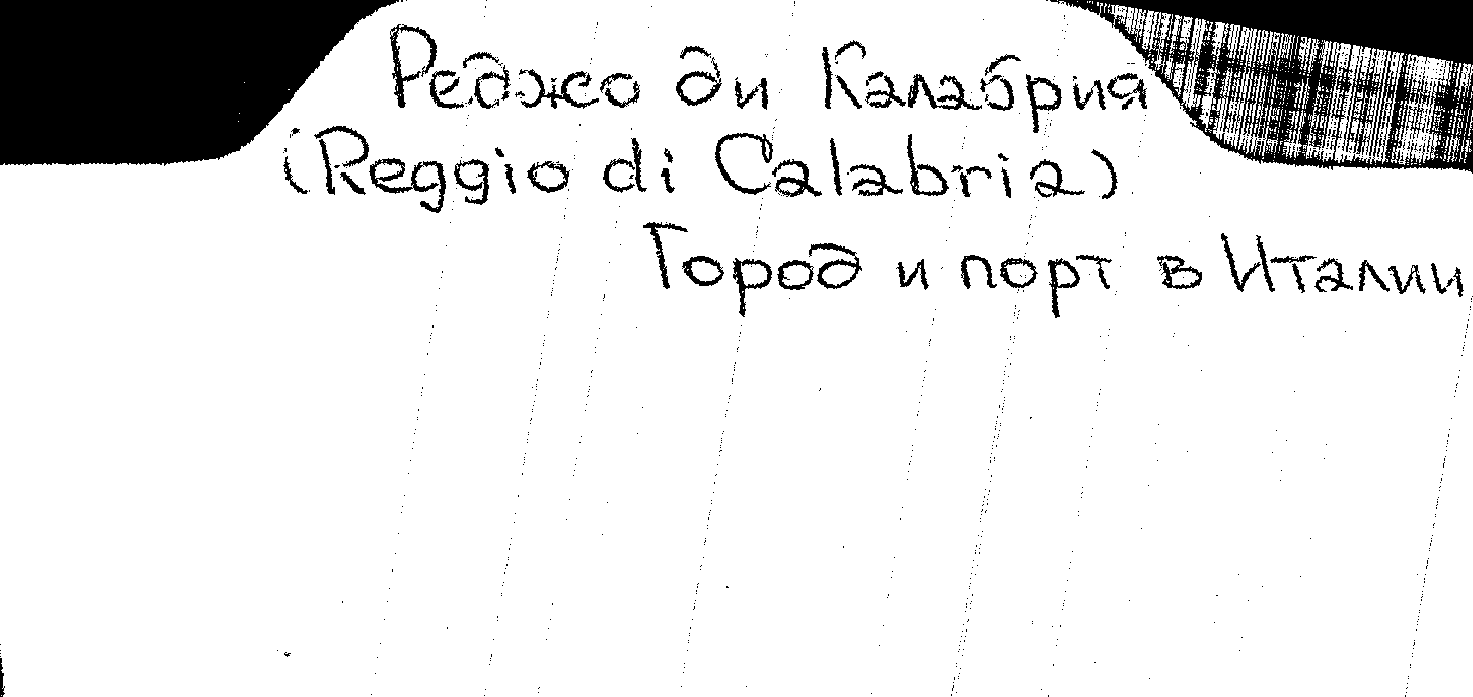 Реджо ди Калабрия
(Reggio di Calabria)
Город и порт в Италии